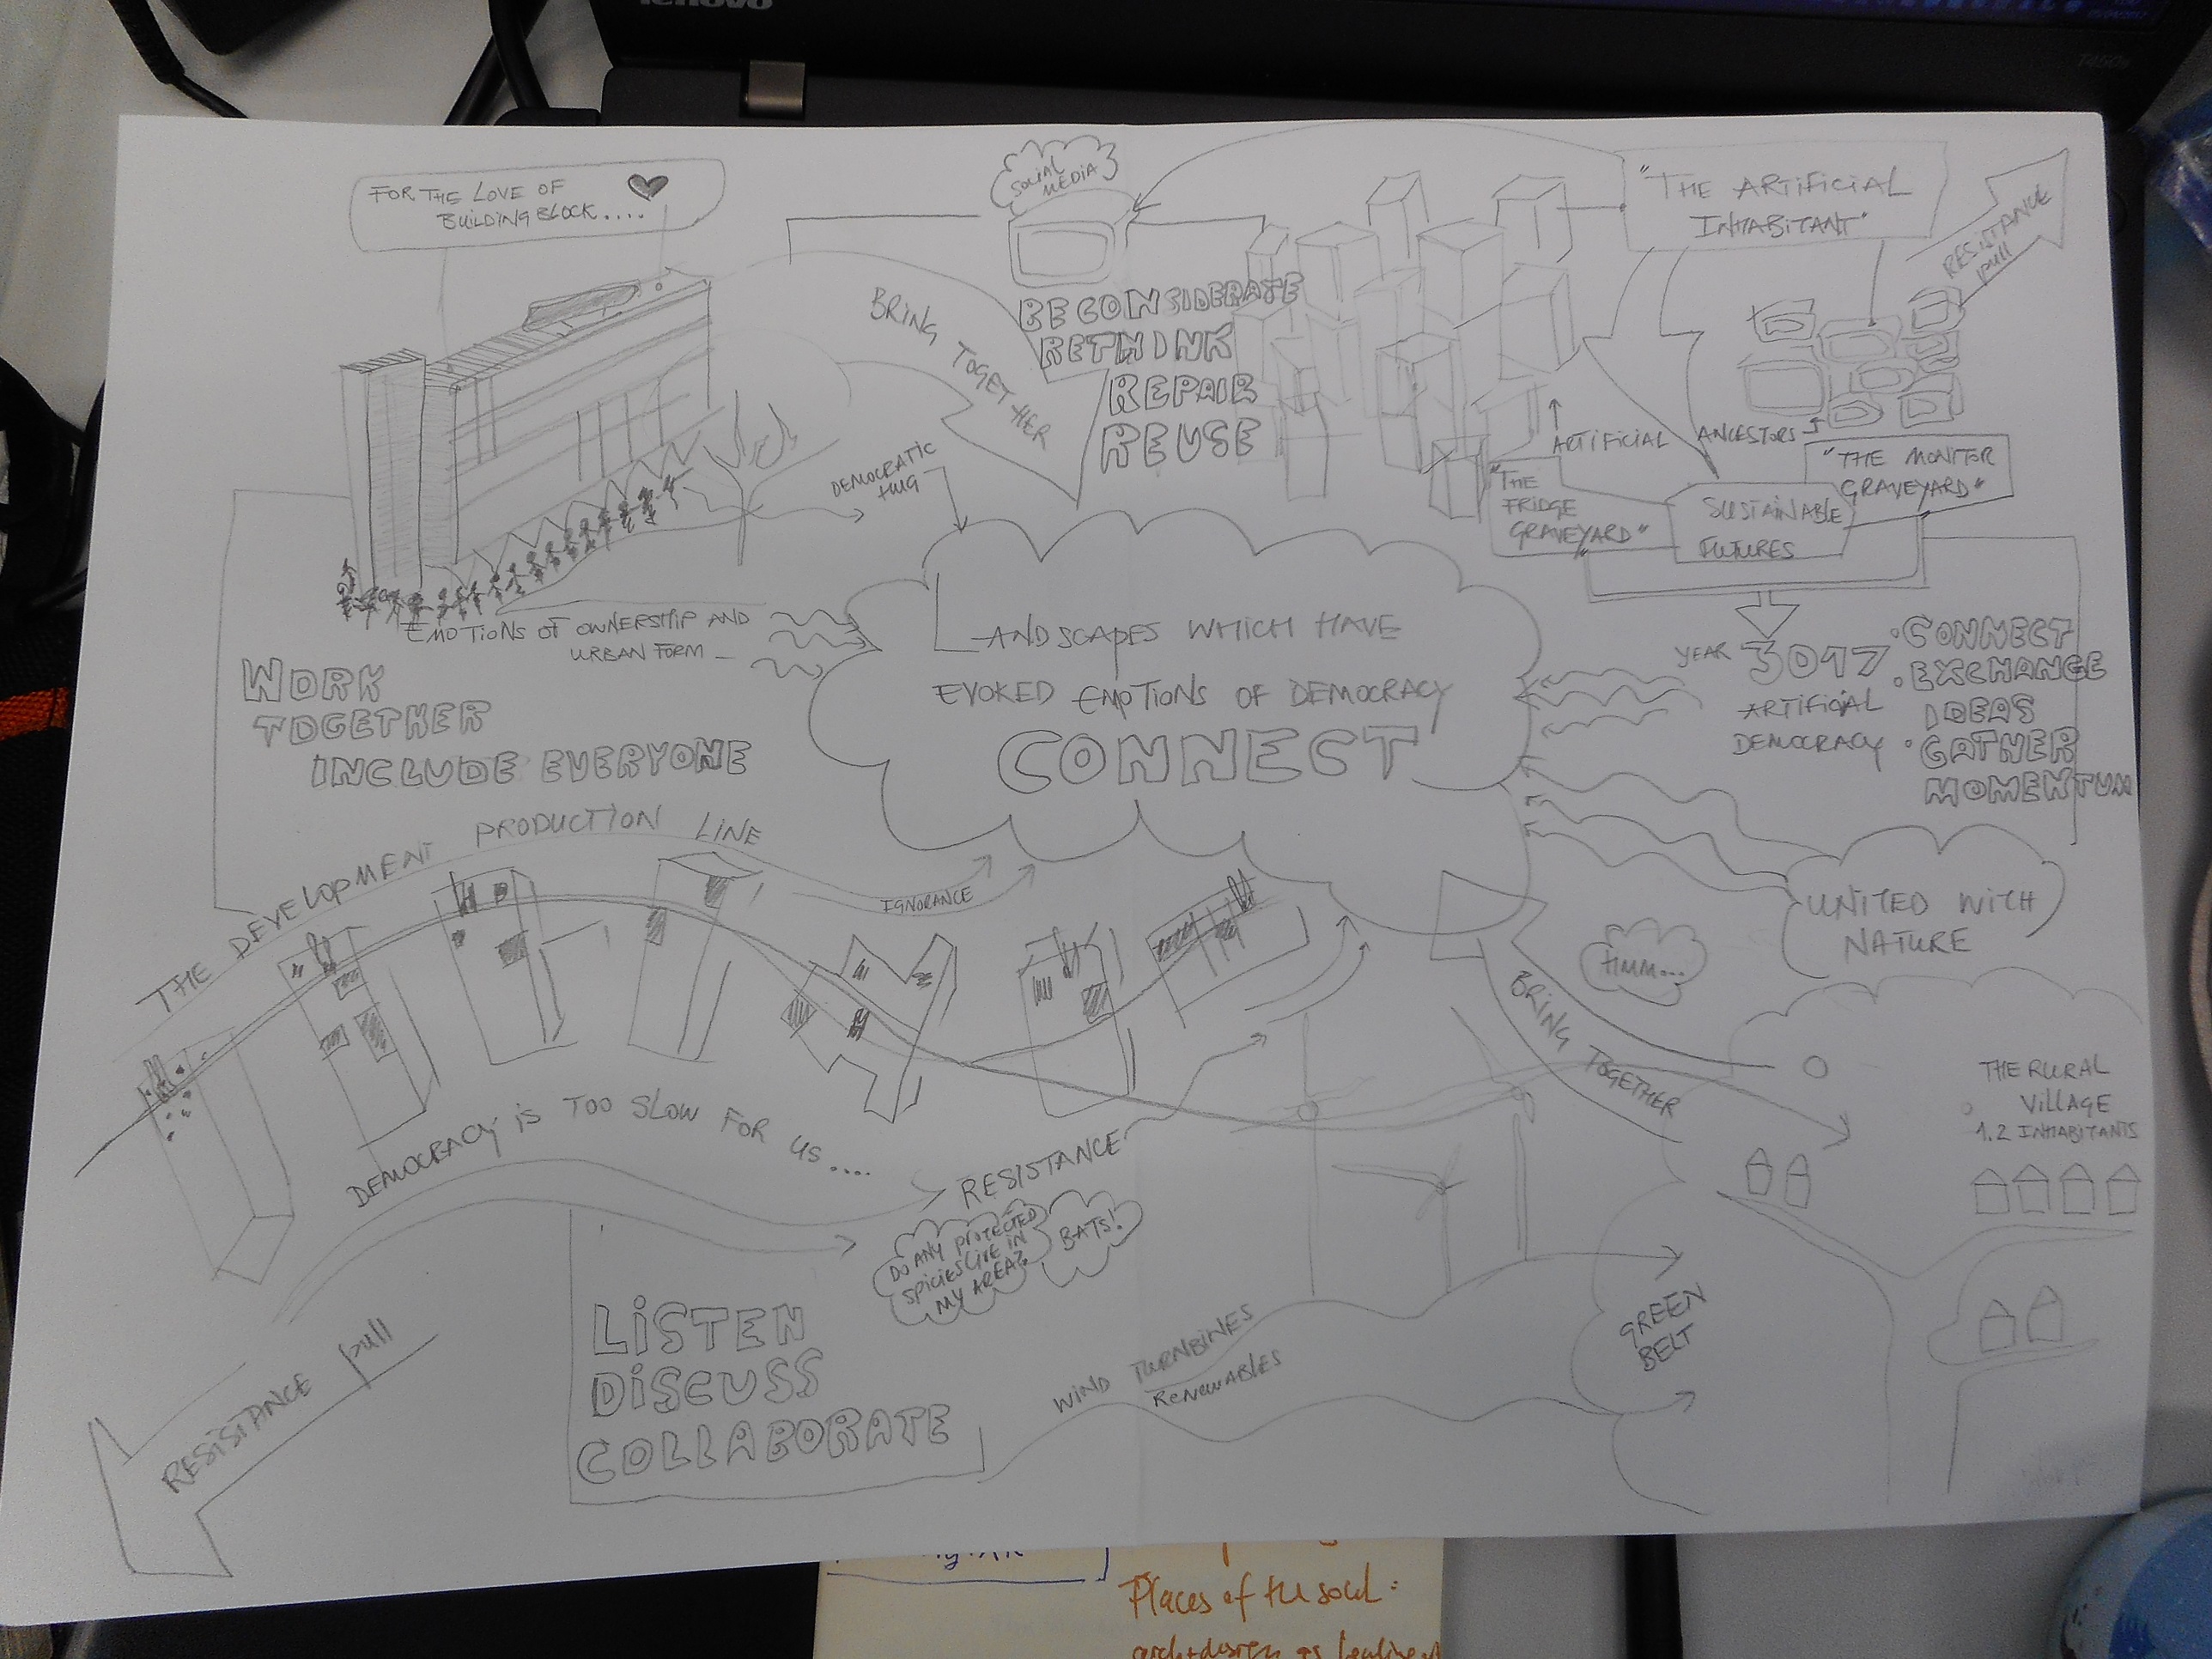 lenovo
T450s
FOR THE LOVE OF
BUILDING BLOCK....
SOCIAL
MEDIA
"THE ARTIFICIAL
INHABITANT"
RESISTANCE
pull
BRING TOGETHER
BE CONSIDERATE
RETHINK
REPAIR
REUSE
DEMOCRATIC
HUG
ARTIFICIAL ANCESTORS
"THE
FRIDGE
GRAVEYARD"
"THE MONITOR
GRAVEYARD"
SUSTAINABLE
FUTURES
EMOTIONS OF OWNERSHIP AND
URBAN FORM
LANDSCAPES WHICH HAVE
EVOKED EMOTIONS OF DEMOCRACY
CONNECT
YEAR 3017
ARTIFICIAL
DEMOCRACY
• CONNECT
• EXCHANGE
IDEAS
• GATHER
MOMENTUM
WORK
TOGETHER
INCLUDE EVERYONE
THE DEVELOPMENT PRODUCTION LINE
IGNORANCE
UNITED WITH
NATURE
HMM...
BRING TOGETHER
THE RURAL
VILLAGE
1.2 INHABITANTS
DEMOCRACY IS TOO SLOW FOR US....
RESISTANCE
DO ANY PROTECTED
SPICIES LIVE IN
MY AREA?
BATS!
LISTEN
DISCUSS
COLLABORATE
WIND TURNBINES
RENEWABLES
GREEN
BELT
RESISTANCE pull
Places of the soul: